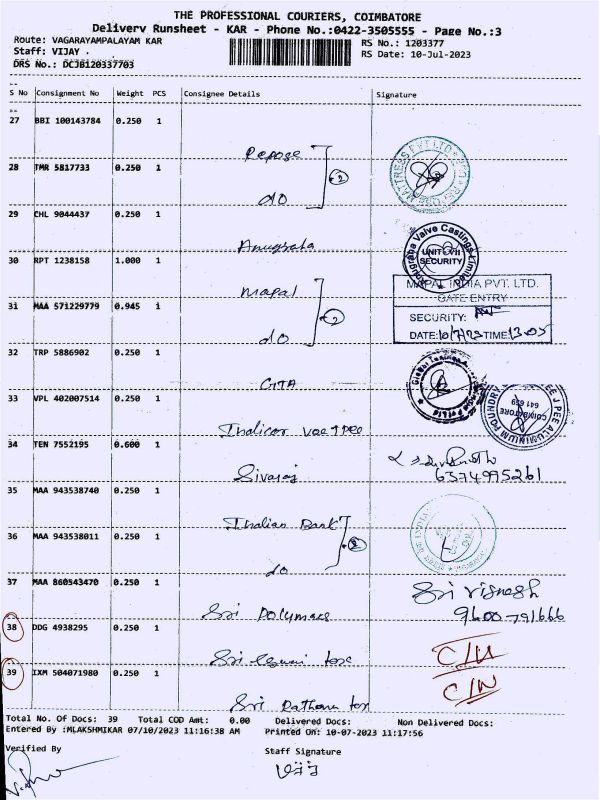 THE PROFESSIONAL COURIERS, COIMBATORE
Delivery Runsheet - KAR - Phone No.:0422-3505555 - Page No.:3
Route: VAGARAYAMPALAYAM KAR
RS No.: 1203377
Staff: VIJAY .
RS Date: 10-Jul-2023
DRS No.: DCJB120337703
S No Consignment No Weight PCS Consignee Details Signature
27 BBI 100143784 0.250 1
Repose
28 TMR 5817733 0.250 1
do
2
29 CHL 9044437 0.250 1
Anugraha
Anugraha Valve Castings Limited
UNIT-VII
SECURITY
30 RPT 1238158 1.000 1
Mapal
MAPAL INDIA PVT. LTD.
GATE ENTRY
31 MAA 571229779 0.945 1
do
2
SECURITY:
DATE:10/7/23 TIME:13.05
32 TRP 5886902 0.250 1
GTA
33 VPL 402007514 0.250 1
COIMBATORE
641 659
34 TEN 7552195 0.600 1
Sivaraj
6374995261
35 MAA 943538740 0.250 1
Indian Bank
36 MAA 943538011 0.250 1
do
2
37 MAA 860543470 0.250 1
Sri Vignesh
Sri Polymers
9600791666
38 DDG 4938295 0.250 1
Sri
C/N
39 IXM 504071980 0.250 1
C/N
Sri
Total No. Of Docs: 39 Total COD Amt: 0.00 Delivered Docs: Non Delivered Docs:
Entered By :MLAKSHMIKAR 07/10/2023 11:16:38 AM Printed On: 10-07-2023 11:17:56
Verified By Staff Signature